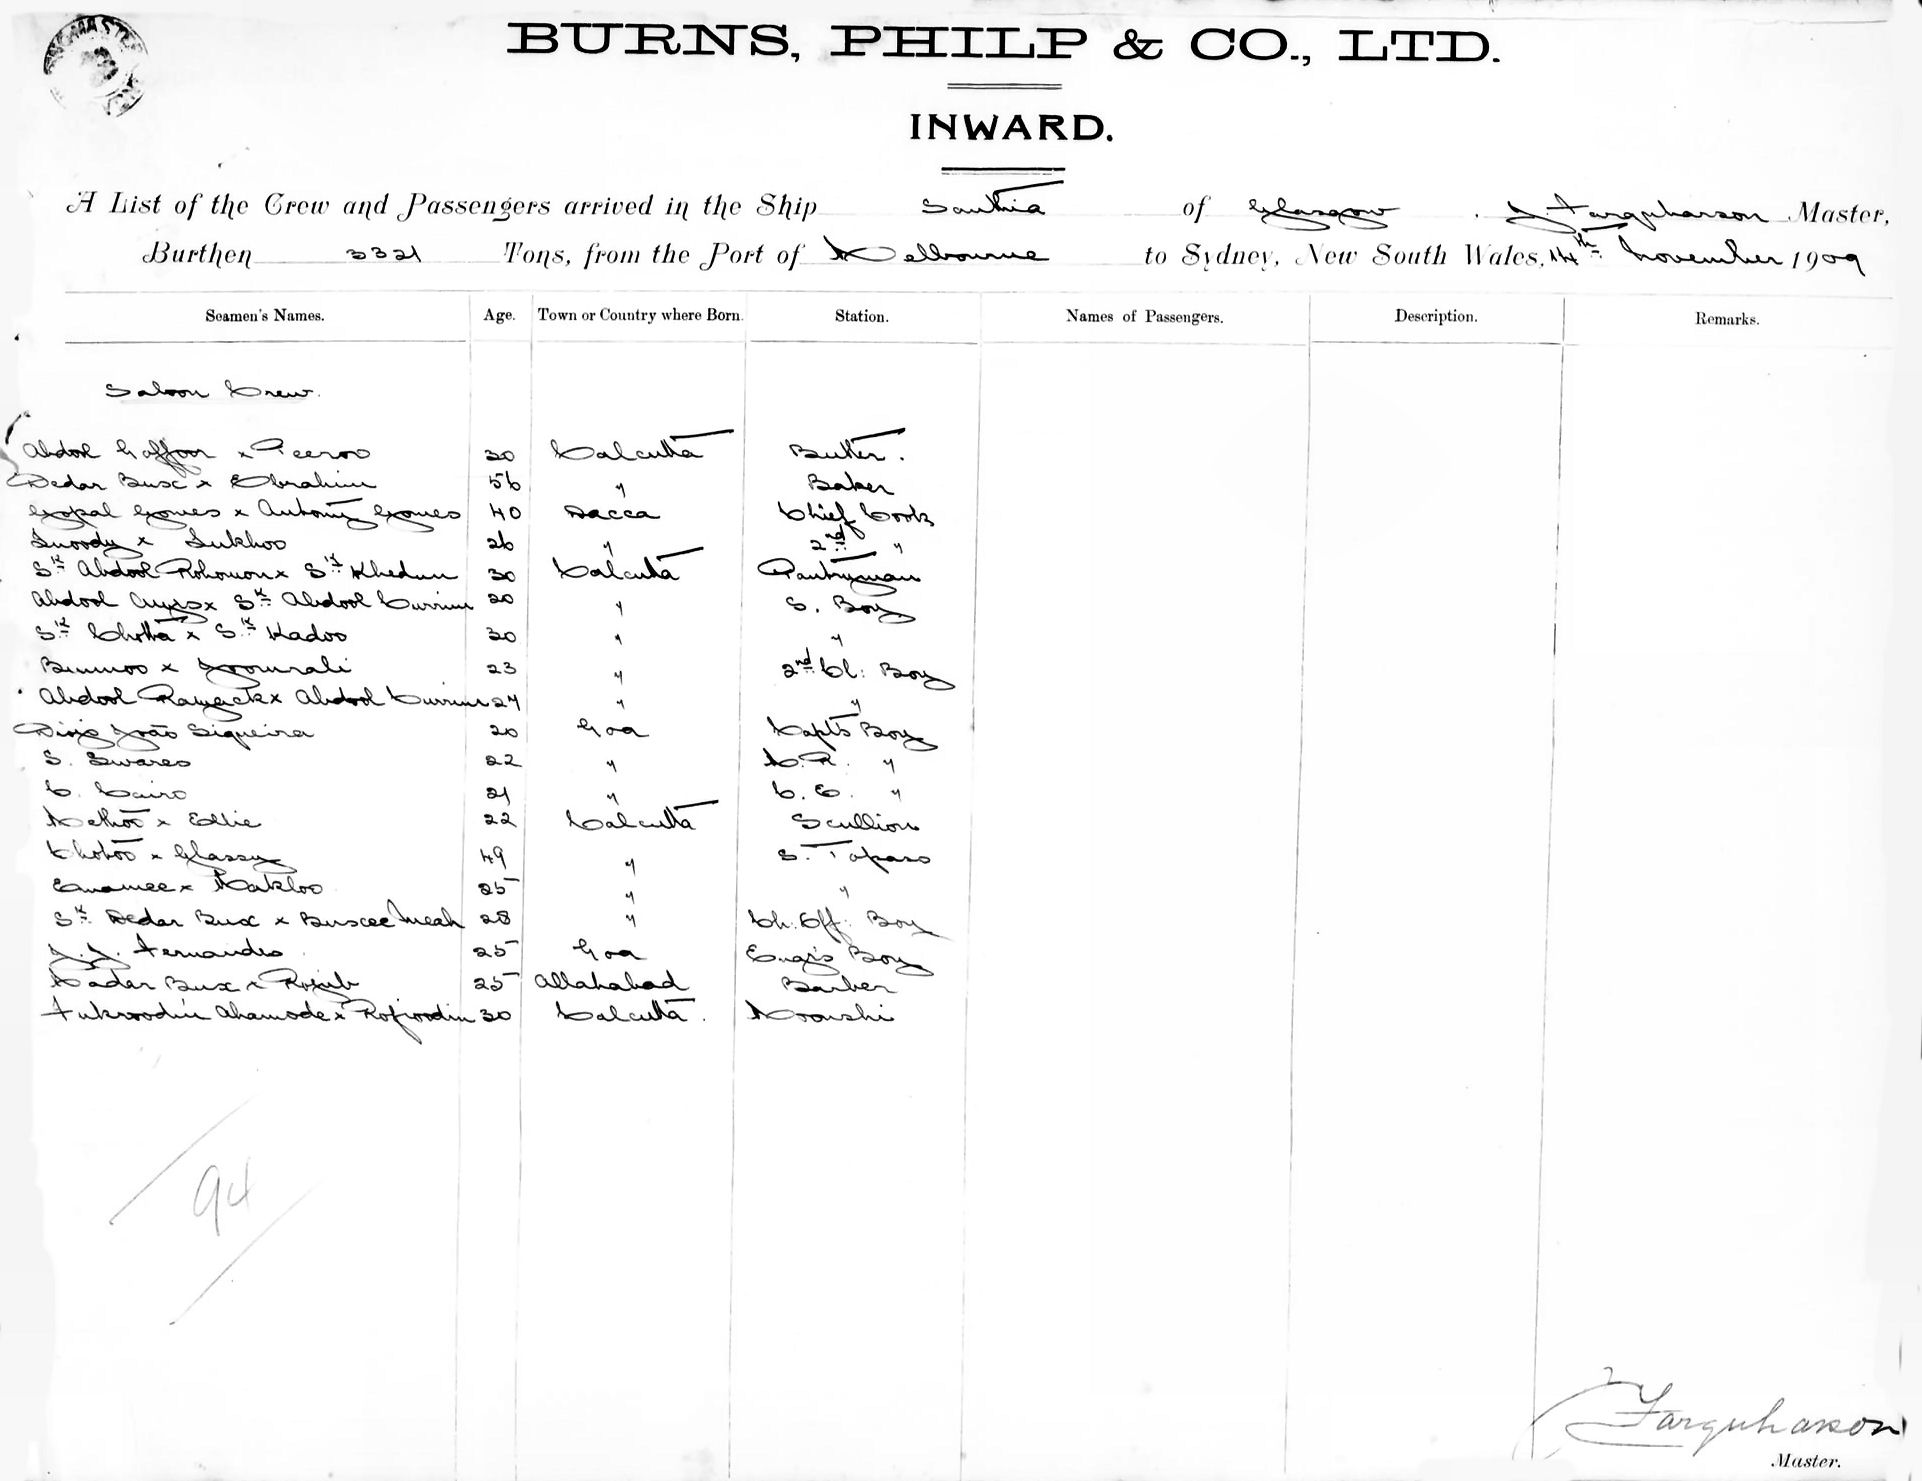 BURNS, PHILP & CO., LTD.
INWARD.
A List of the Crew and Passengers arrived in the Ship Santhia of Glasgow. J. Farquharson Master,
Burthen 3321 Tons, from the Port of Melbourne to Sydney, New South Wales, 14th November 1909
Seamen's Names. Age. Town or Country where Born. Station. Names of Passengers. Description. Remarks.
Saloon Crew.
Abdool Gaffoor x Peeroo 30 Calcutta Butler.
Dedar Busc x Ebrahim 56 " Baker
Gopal Gomes x Antony Gomes 40 Dacca Chief Cook
x Sukhoo 26 " 2nd "
Sk Abdool Rohomon x Sk Khedun 30 Calcutta Pantryman
Abdool x Sk Abdool Currim 20 " S. Boy
Sk Chotta x Sk Kadoo 30 " "
Bunnoo x Joomrali 23 " 2nd Cl: Boy
Abdool x Abdool Currim 27 " "
João Siqueira 20 Goa Capt's Boy
S. Swares 22 " M.R. "
C. Cairo 21 " C.E. "
Methoo x Ellie 22 Calcutta Scullion
x Glassy 49 " S. Topass
Emamee x Makloo 25 " "
Sk Dedar Bux x Buscee Meah 28 " Ch: Off: Boy
J.J. Fernandes 25 Goa Engrs Boy
Madar Bux x Rojub 25 Allahabad Barber
Fukroodin Ahamode x Rofioodin 30 Calcutta. Moonshi
94
J Farquharson
Master.